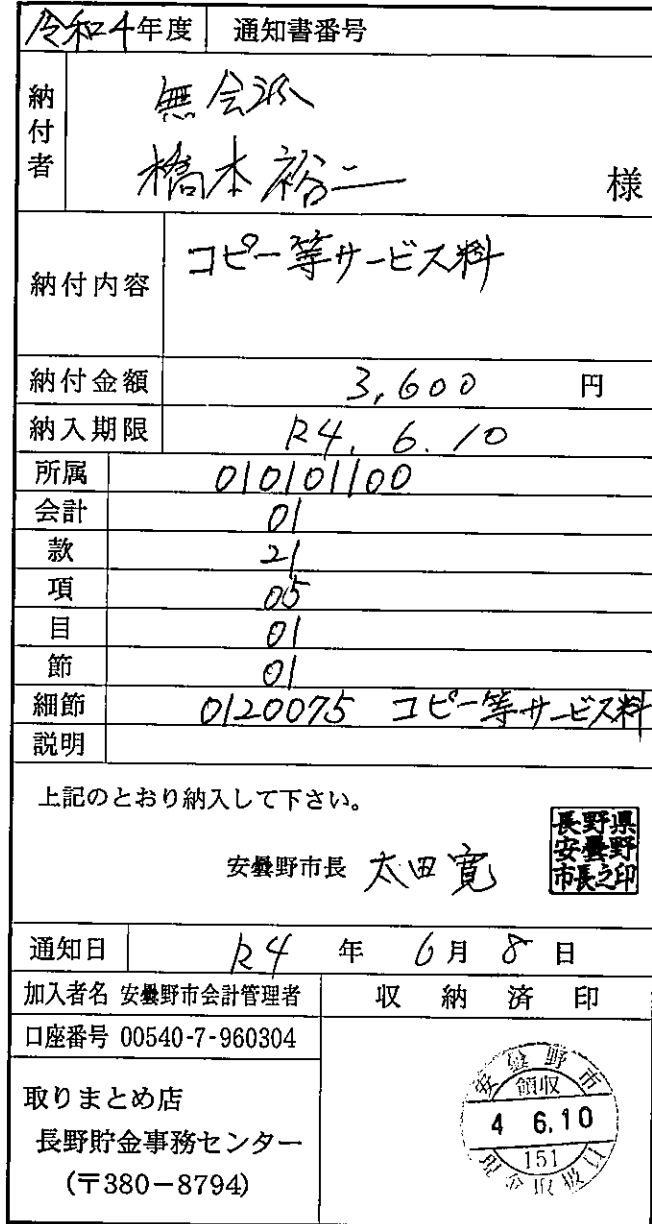 令和4年度 通知書番号
納付者 無会派
橋本裕二 様
納付内容 コピー等サービス料
納付金額 3,600 円
納入期限 R4. 6. 10
所属 010101100
会計 01
款 21
項 05
目 01
節 01
細節 0120075 コピー等サービス料
説明
上記のとおり納入して下さい。
安曇野市長 太田寛
長野県
安曇野
市長之印
通知日 R4 年 6月 8日
加入者名 安曇野市会計管理者
口座番号 00540-7-960304
取りまとめ店
長野貯金事務センター
(〒380-8794)
収納済印
安曇野市
領収
4 6.10
151
現金取扱員